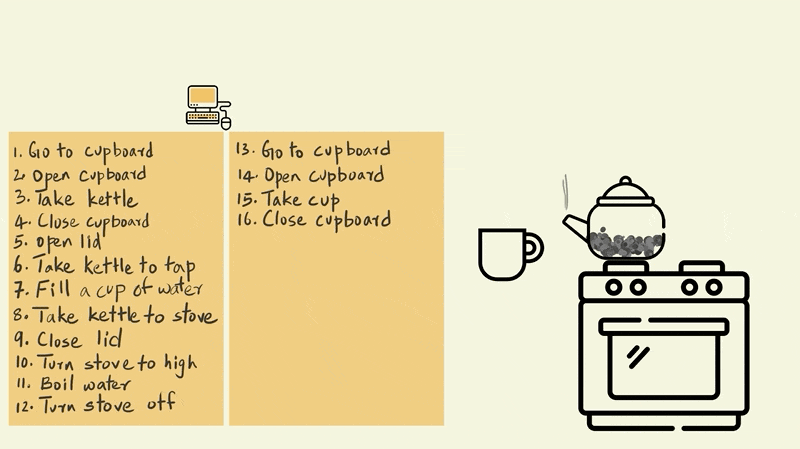 1. Go to cupboard
2. Open cupboard
3. Take kettle
4. Close cupboard
5. Open lid
6. Take kettle to tap
7. Fill a cup of water
8. Take kettle to stove
9. Close lid
10. Turn stove to high
11. Boil water
12. Turn stove off
13. Go to cupboard
14. Open cupboard
15. Take cup
16. Close cupboard